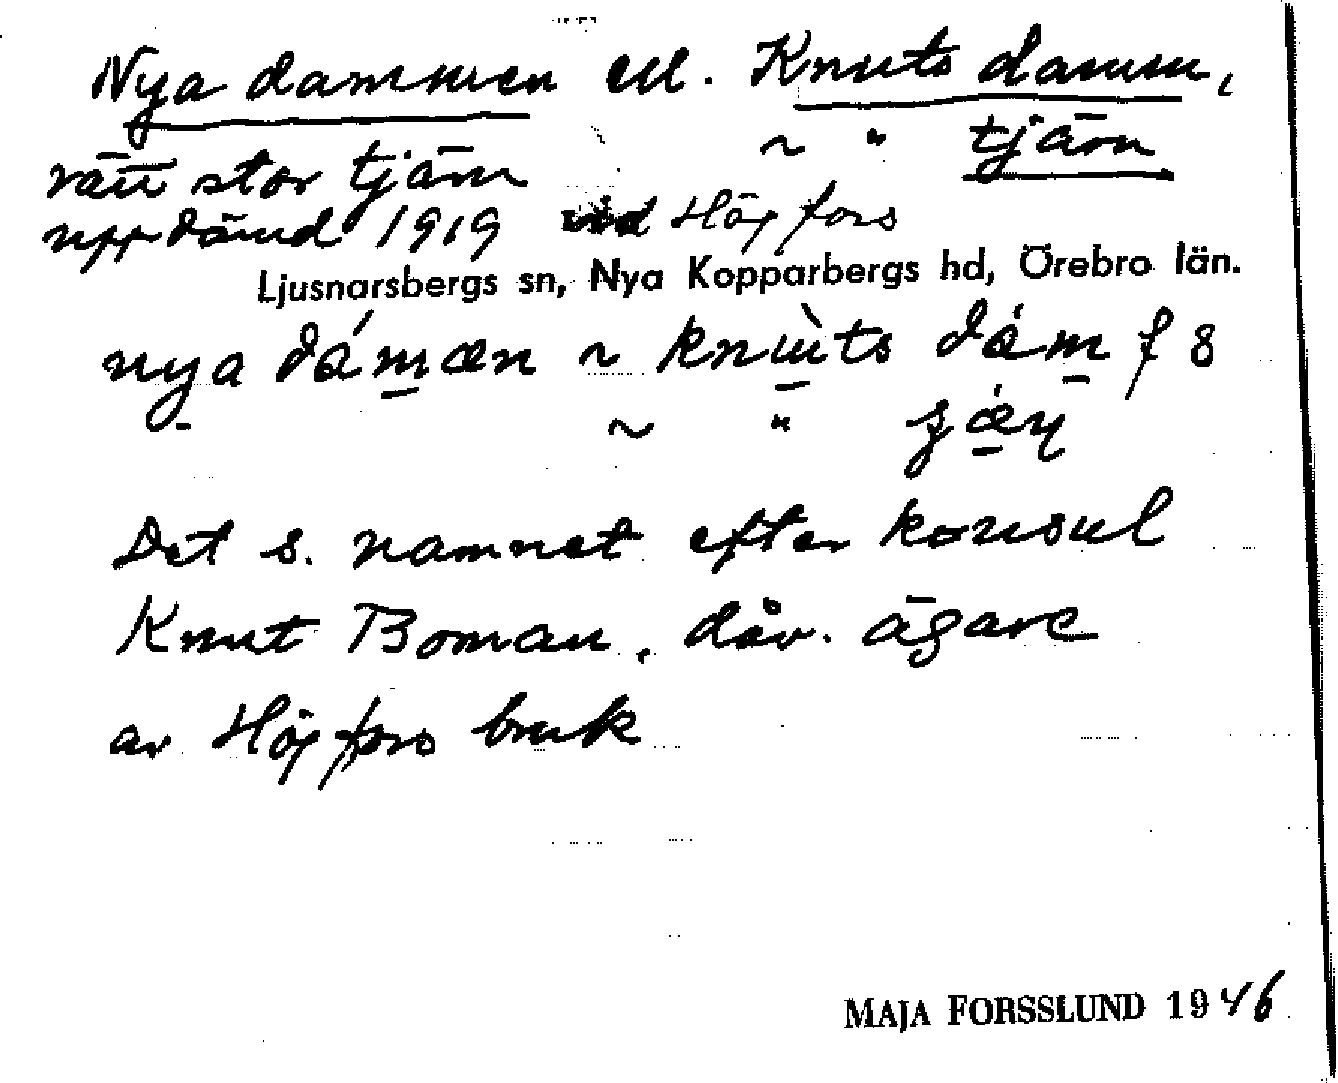 Nya dammen ell. Knuts damm,
~ " tjärn
rätt stor tjärn
uppdämd 1919 vid Högfors
Ljusnarsbergs sn, Nya Kopparbergs hd, Örebro län.
nya dámæn ~ knùts dám f 8
~ "
Det s. namnet efter konsul
Knut Boman, dåv. ägare
av Högfors bruk
MAJA FORSSLUND 1946